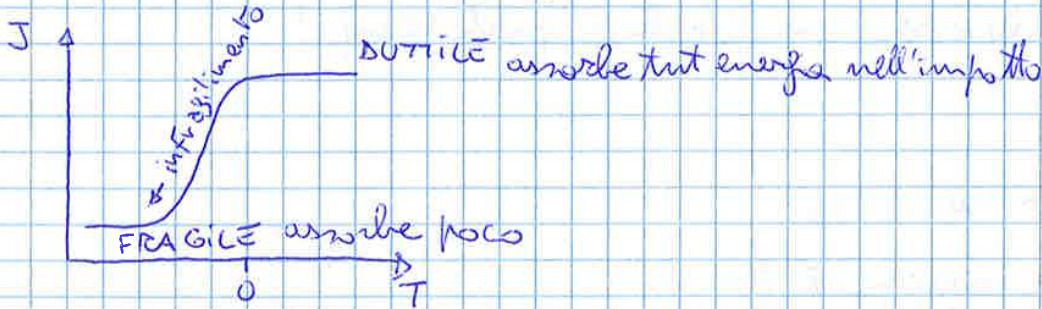 J
infragilimento
DUTTILE assorbe tut energia nell'impatto
FRAGILE assorbe poco
0
T